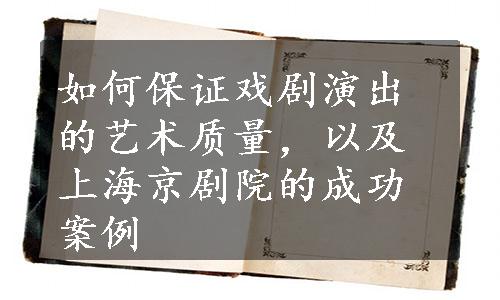 如何保证戏剧演出
的艺术质量，以及
上海京剧院的成功
案例